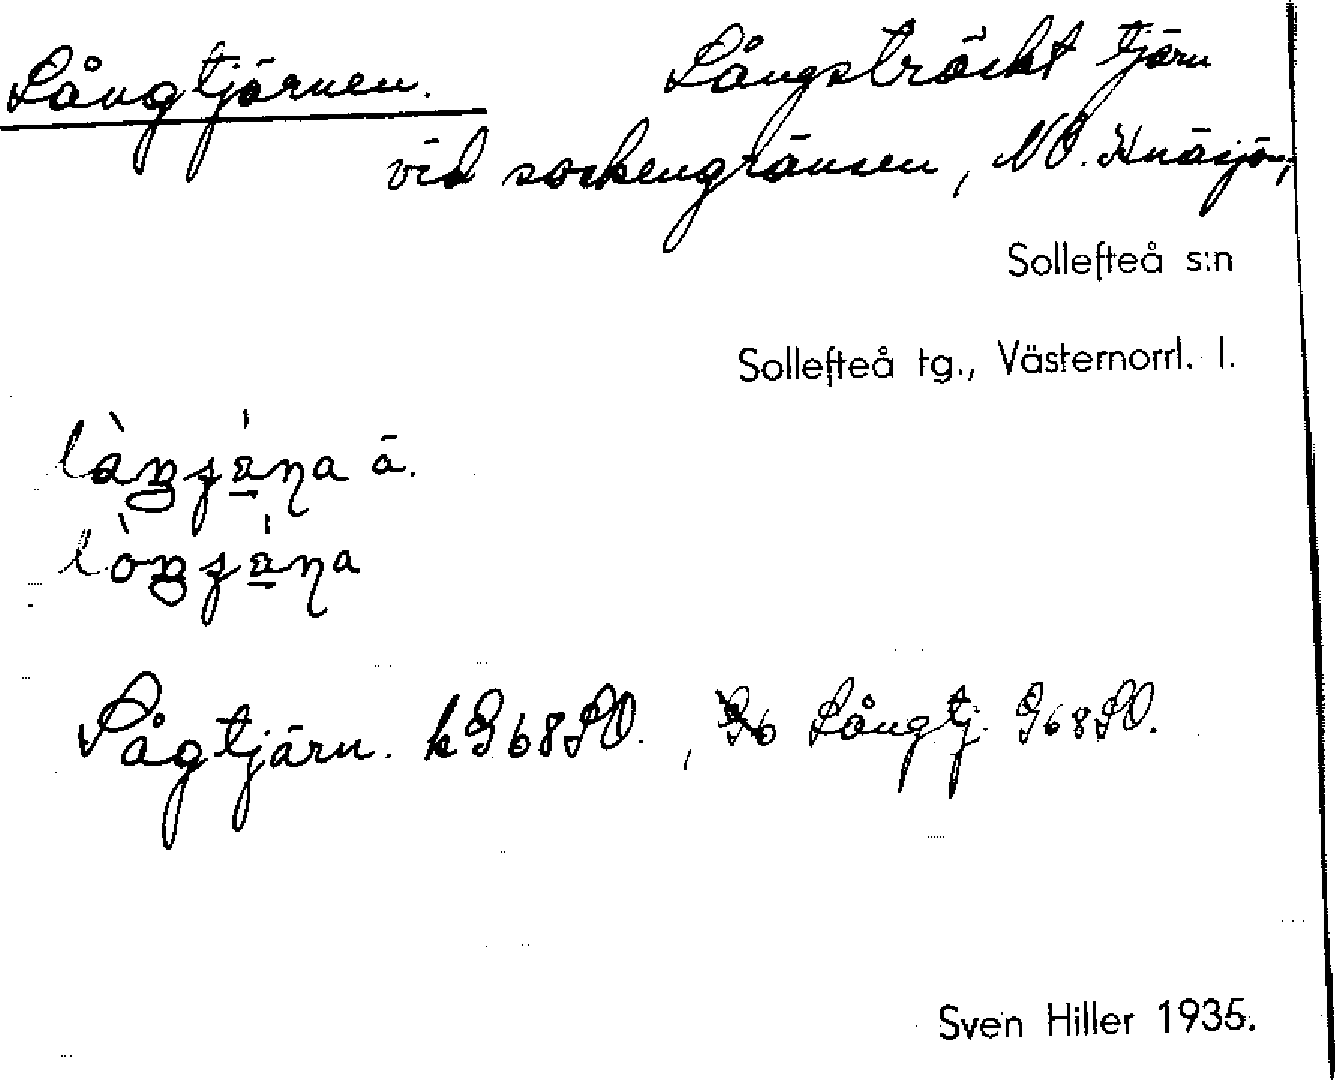 Långtjärnen. Långsträckt tjärn
vid sockengränsen, NO. Knäsjö,
Sollefteå s:n
Sollefteå tg., Västernorrl. l.
ä.
Lågtjärn. k G68SO., Långtj. G68SO.
Sven Hiller 1935.